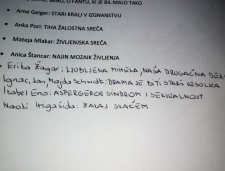 Arno Geiger: STARI KRALJ V IZGNANSTVU
Anka Pori: TIHA ŽALOSTNA SREČA
Mateja Mlakar: ŽIVLJENJSKA SREČA
Anica Štancar: NAJIN MOZAIK ŽIVLJENJA
Erika Žagar: LJUBLJENA MIHELA, NAŠA DRUGAČNA DEK
Ignac, Lan, Majda Schmidt: DRAMA JE BITI STARŠ
Izabel Eno: ASPERGERJEV SINDROM I SEKSUALNOST
Naoki Higašida: ZAKAJ SKAČEM